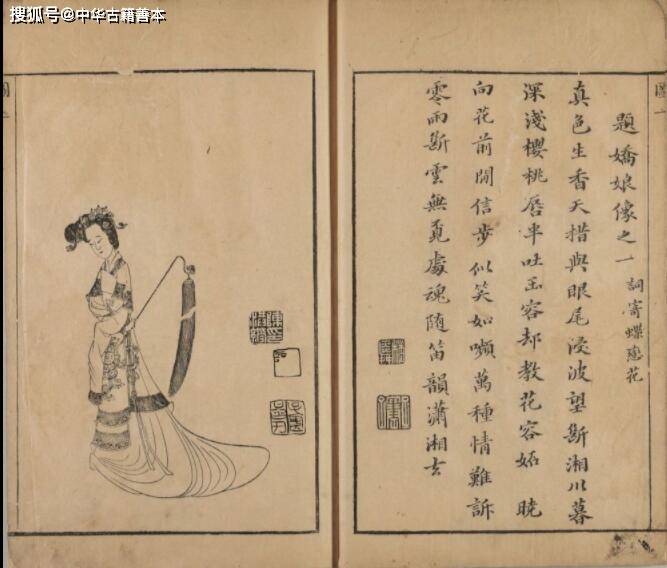 搜狐号@中华古籍善本
題嬌娘像之一 詞寄蝶戀花
真色生香天措與眼尾浸波望斷湘川暮
深淺櫻桃唇半吐玉容却教花容妬 曉
向花前閒信步似笑如嚬萬種情難訴
零雨斷雲無覓處魂隨笛韻瀟湘去